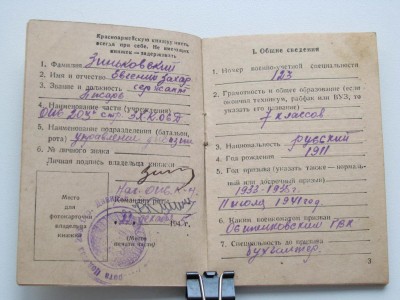 Красноармейскую книжку иметь
всегда при себе. Не имеющих
книжек — задерживать.
1. Фамилия Зинковский
2. Имя и отчество Евгений Захар
3. Звание и должность сержант
писарь
4. Наименование части (учреждения)
204
5. Наименование подразделения (батальон,
рота) управление дивизии
6. № личного знака
Личная подпись владельца книжки
Место
для
фотокарточки
владельца
книжки
Командир части
(Место
печати части)
I. Общие сведения
1. Номер военно-учетной специальности
123
2. Грамотность и общее образование (если
окончил техникум, рабфак или ВУЗ, то указать)
7 классов
3. Национальность русский
4. Год рождения 1911
5. Год призыва (указать также — нормальный
или досрочный призыв)
1933-1935г.
Июль 1941 год.
6. Каким военкоматом призван
РВК
7. Специальность до призыва
бухгалтер.
3